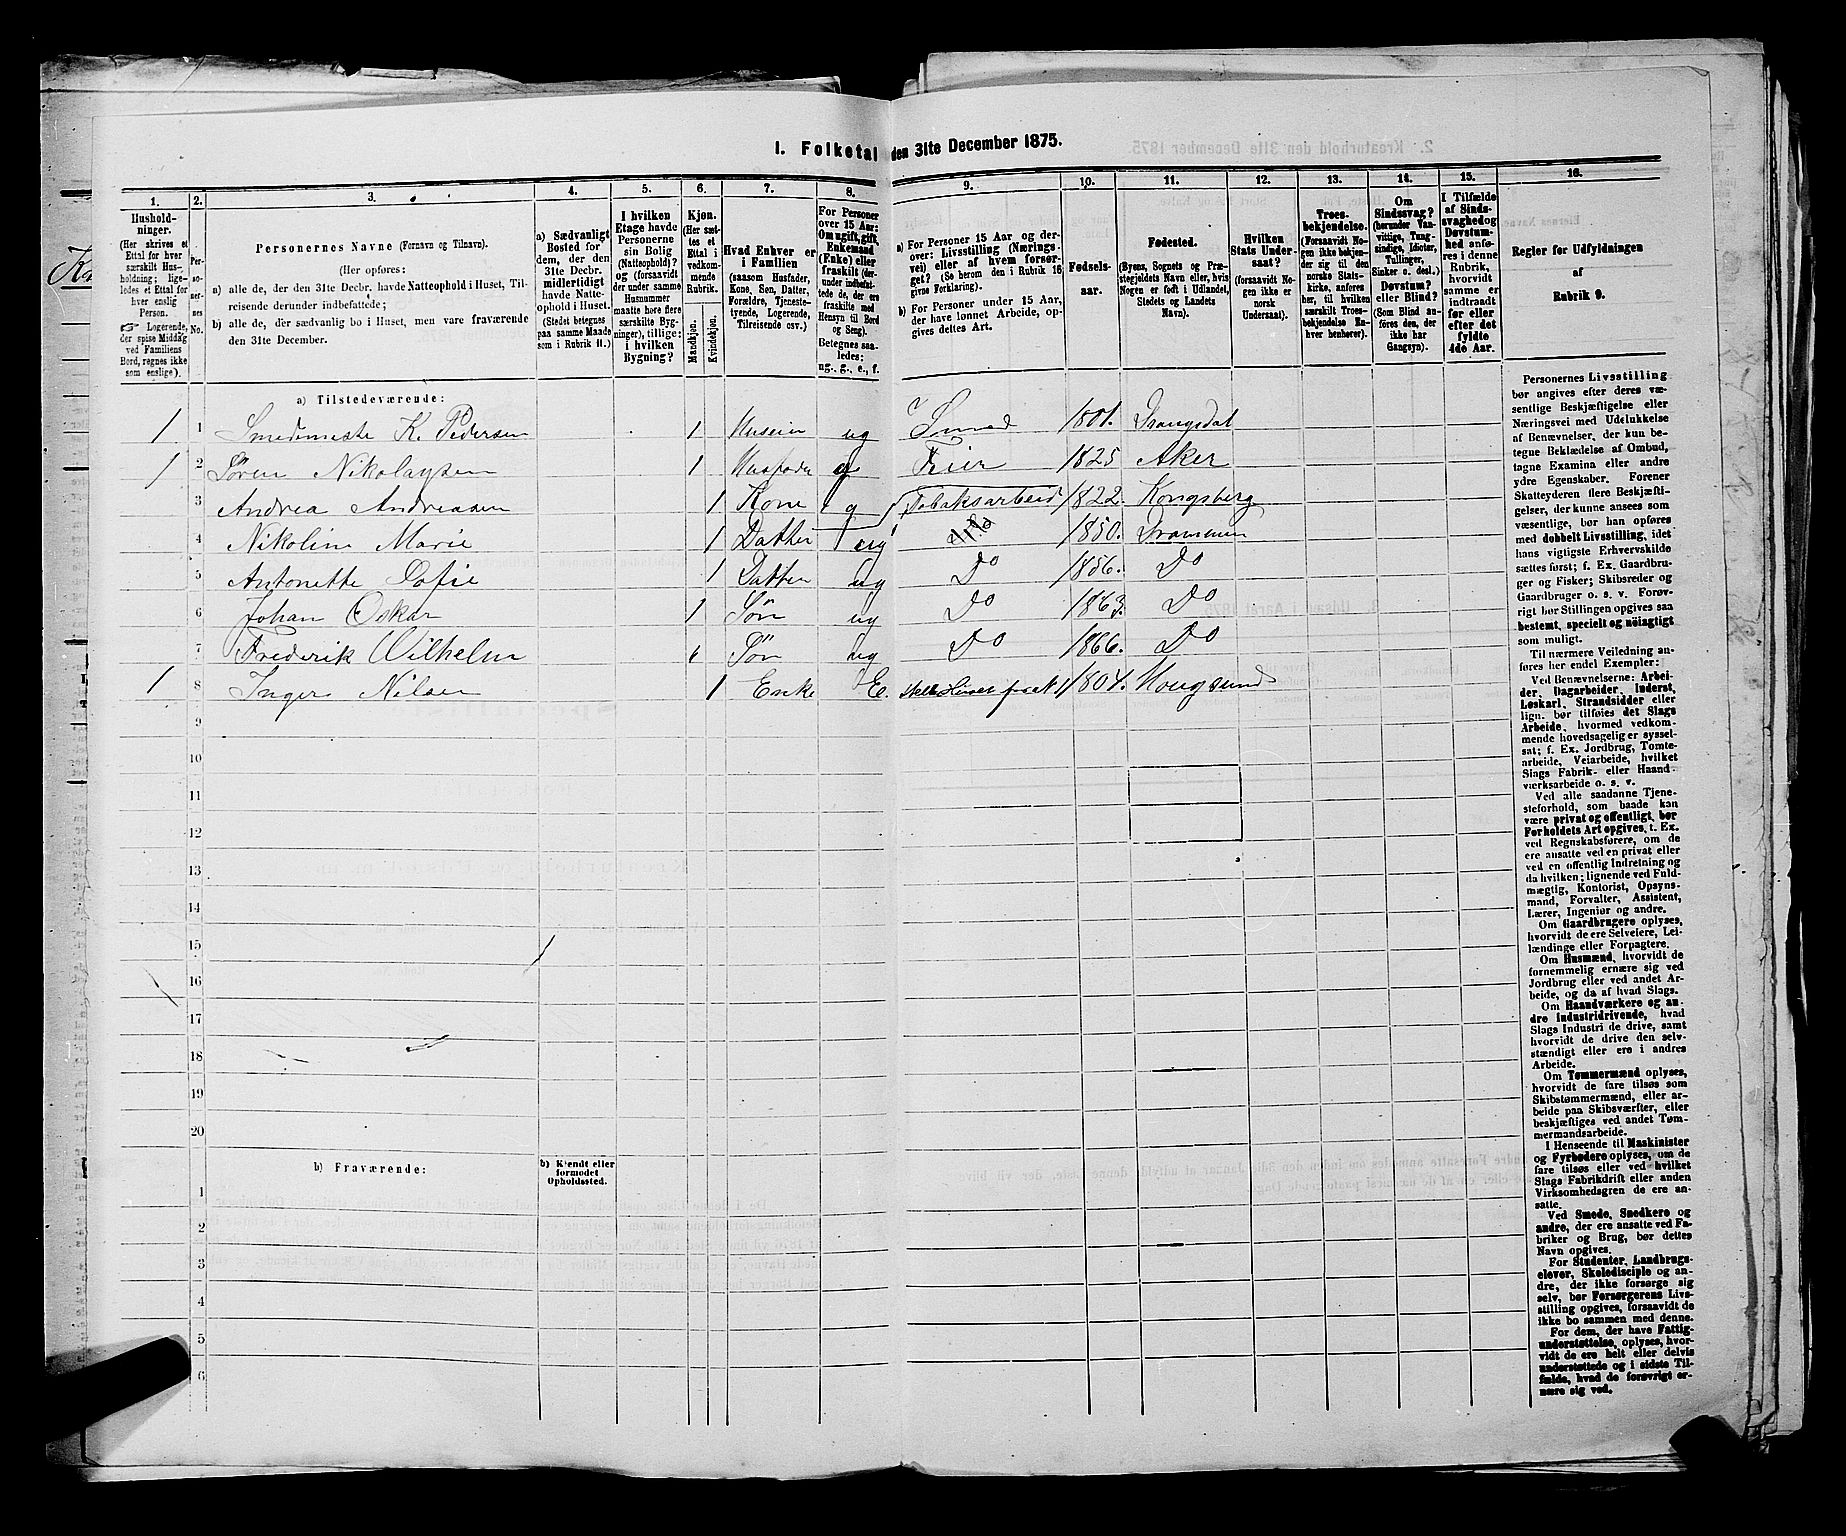 1. Folketal den 31te December 1875.
1. 2. 3. 4. 5. 6. 7. 8. 9. 10. 11. 12. 13. 14. 15. 16.
Hushold-
ninger.
(Her skrives et
Ettal for hver
særskilt Hus-
holdning; lige-
ledes et Ettal for
hver enslig
Person.
☞ Logerende,
der spise Middag
ved Familiens
Bord, regnes ikke
som enslige).
Per-
so-
ner-
nes
No.
Personernes Navne (Fornavn og Tilnavn).
(Her opføres:
a) alle de, der den 31te Decbr. havde Natteophold i Huset, Til-
reisende derunder indbefattede;
b) alle de, der sædvanlig bo i Huset, men vare fraværende
den 31te December.
a) Sædvanligt
Bosted for
dem, der den
31te Decbr.
midlertidigt
havde Natte-
ophold i Huset.
(Stedet betegnes
paa samme Maade
som i Rubrik 11.)
I hvilken
Etage havde
Personerne
sin Bolig
(Natteophold)?
og (forsaavidt
der under samme
Husnummer
maatte høre flere
særskilte Byg-
ninger), tillige:
i hvilken
Bygning?
Kjøn.
(Her sæt-
tes et
Ettal i
vedkom-
mende
Rubrik.
Mandkjøn.
Kvindekjøn.
Hvad Enhver er
i Familien
(saasom Husfader,
Kone, Søn, Datter,
Forældre, Tjeneste-
tyende, Logerende,
Tilreisende osv.)
For Personer
over 15 Aar:
Om ugift, gift,
Enkemand
(Enke) eller
fraskilt (der-
under indbefat-
tede de, der ere
fraskilte med
Hensyn til Bord
og Seng).
Betegnes saa-
ledes:
ug., g., e., f.
a) For Personer 15 Aar og der-
over: Livsstilling (Nærings-
vei) eller af hvem forsør-
get? (Se herom den i Rubrik 16
givne Forklaring).
b) For Personer under 15 Aar,
der have lønnet Arbeide, op-
gives dettes Art.
Fødsels-
aar.
Fødested.
(Byens, Sognets og Præ-
stegjeldets Navn eller, hvis
Nogen er født i Udlandet,
Stedets og Landets
Navn).
Hvilken
Stats Under-
saat?
(forsaavidt No-
gen ikke er
norsk
Undersaat).
Troes-
bekjendelse.
(Forsaavidt No-
gen ikke bekjen-
der sig til den
norske Stats-
kirke, anføres
her, til hvilken
særskilt Troes-
bekjendelse En-
hver henhører).
Om
Sindssvag?
(herunder Van-
vittige, Tung-
sindige, Idioter,
Tullinger,
Sinker o. desl.)
Døvstum?
eller Blind?
(Som Blind an-
føres den, der
ikke har
Gangsyn).
I Tilfælde
af Sinds-
svaghed og
Døvstum-
hed anfø-
res i denne
Rubrik,
hvorvidt
samme er
indtraadt
før eller
efter det
fyldte
4de Aar.
Regler for Udfyldningen
af
Rubrik 9.
a) Tilstedeværende:
1 1 Smedemeste K. Pedersen 1 Huseier ug Smed 1801. Drangedal
1 2 Søren Nikolaysen 1 Husfader g Feier 1825 Aker
3 Andrea Andreasen 1 Kone g Tobaksarbeid 1822. Kongsberg
4 Nikoline Marie 1 Datter ug 1850. Drammen
5 Antonette Sofie 1 Datter ug Do 1856. Do
6 Johan Oskar 1 Søn ug Do 1863. Do
7 Frederik Wilhelm 1 Søn ug Do 1866. Do
1 8 Inger Nilsen 1 Enke E. 1804. Hougsund
9
10
11
12
13
14
15
16
17
18
19
20
b) Fraværende:
b) Kjendt eller
formodet
Opholdssted.
1
2
3
4
5
6
Personernes Livsstilling
bør angives efter deres væ-
sentlige Beskjæftigelse eller
Næringsvei med Udelukkelse
af Benævnelser, der kun be-
tegne Beklædelse af Ombud,
tagne Examina eller andre
ydre Egenskaber. Forener
Skatteyderen flere Beskjæfti-
gelser, der kunne ansees som
væsentlige, bør han opføres
med dobbelt Livsstilling, idet
hans vigtigste Erhvervskilde
sættes først; f. Ex. Gaardbru-
ger og Fisker; Skibsreder og
Gaardbruger o. s. v. Forøv-
rigt bør Stillingen opgives saa
bestemt, specielt og nøiagtigt
som muligt.
Til nærmere Veiledning an-
føres her endel Exempler:
Ved Benævnelserne: Arbei-
der, Dagarbeider, Inderst,
Løskarl, Strandsidder eller
lign. bør tilføies det Slags
Arbeide, hvormed vedkom-
mende hovedsagelig er syssel-
sat; f. Ex. Jordbrug, Tomte-
arbeide, Veiarbeide, hvilket
Slags Fabrik- eller Haand-
værksarbeide o. s. v.
Ved alle saadanne Tjene-
steforhold, som baade kan
være privat og offentligt, bør
Forholdets Art opgives, t. Ex.
ved Regnskabsførere, om de
ere ansatte ved en privat eller
ved en offentlig Indretning og
da hvilken; lignende ved Fuld-
mægtig, Kontorist, Opsyns-
mand, Forvalter, Assistent,
Lærer, Ingeniør og andre.
Om Gaardbrugere oplyses,
hvorvidt de ere Selveiere, Lei-
lændinge eller Forpagtere.
Om Husmænd, hvorvidt de
fornemmelig ernære sig ved
Jordbrug eller ved andet Ar-
beide, og da af hvad Slags.
Om Haandværkere og an-
dre Industridrivende, hvad
Slags Industri de drive, samt
hvorvidt de drive den selv-
stændigt eller ere i andres
Arbeide.
Om Tømmermænd oplyses,
hvorvidt de fare tilsøs som
Skibstømmermænd, eller ar-
beide paa Skibsværfter, eller
beskjæftiges ved andet Tøm-
mermandsarbeide.
I Henseende til Maskinister
og Fyrbødere oplyses, om de
fare tilsøs eller ved hvilket
Slags Fabrikdrift eller anden
Virksomhedsgren de ere an-
satte.
Ved Smede, Snedkere og
andre, der ere ansatte ved Fa-
briker og Brug, bør dettes
Navn opgives.
For Studenter, Landbrugs-
elever, Skoledisciple og an-
dre, der ikke forsørge sig
selv, bør Forsørgerens Livs-
stilling opgives, forsaavidt de
ikke bo sammen med denne.
For dem, der have Fattig-
understøttelse, oplyses, hvor-
vidt de ere helt eller delvis
understøttede og i sidste Til-
fælde, hvad de forøvrigt er-
nære sig ved.